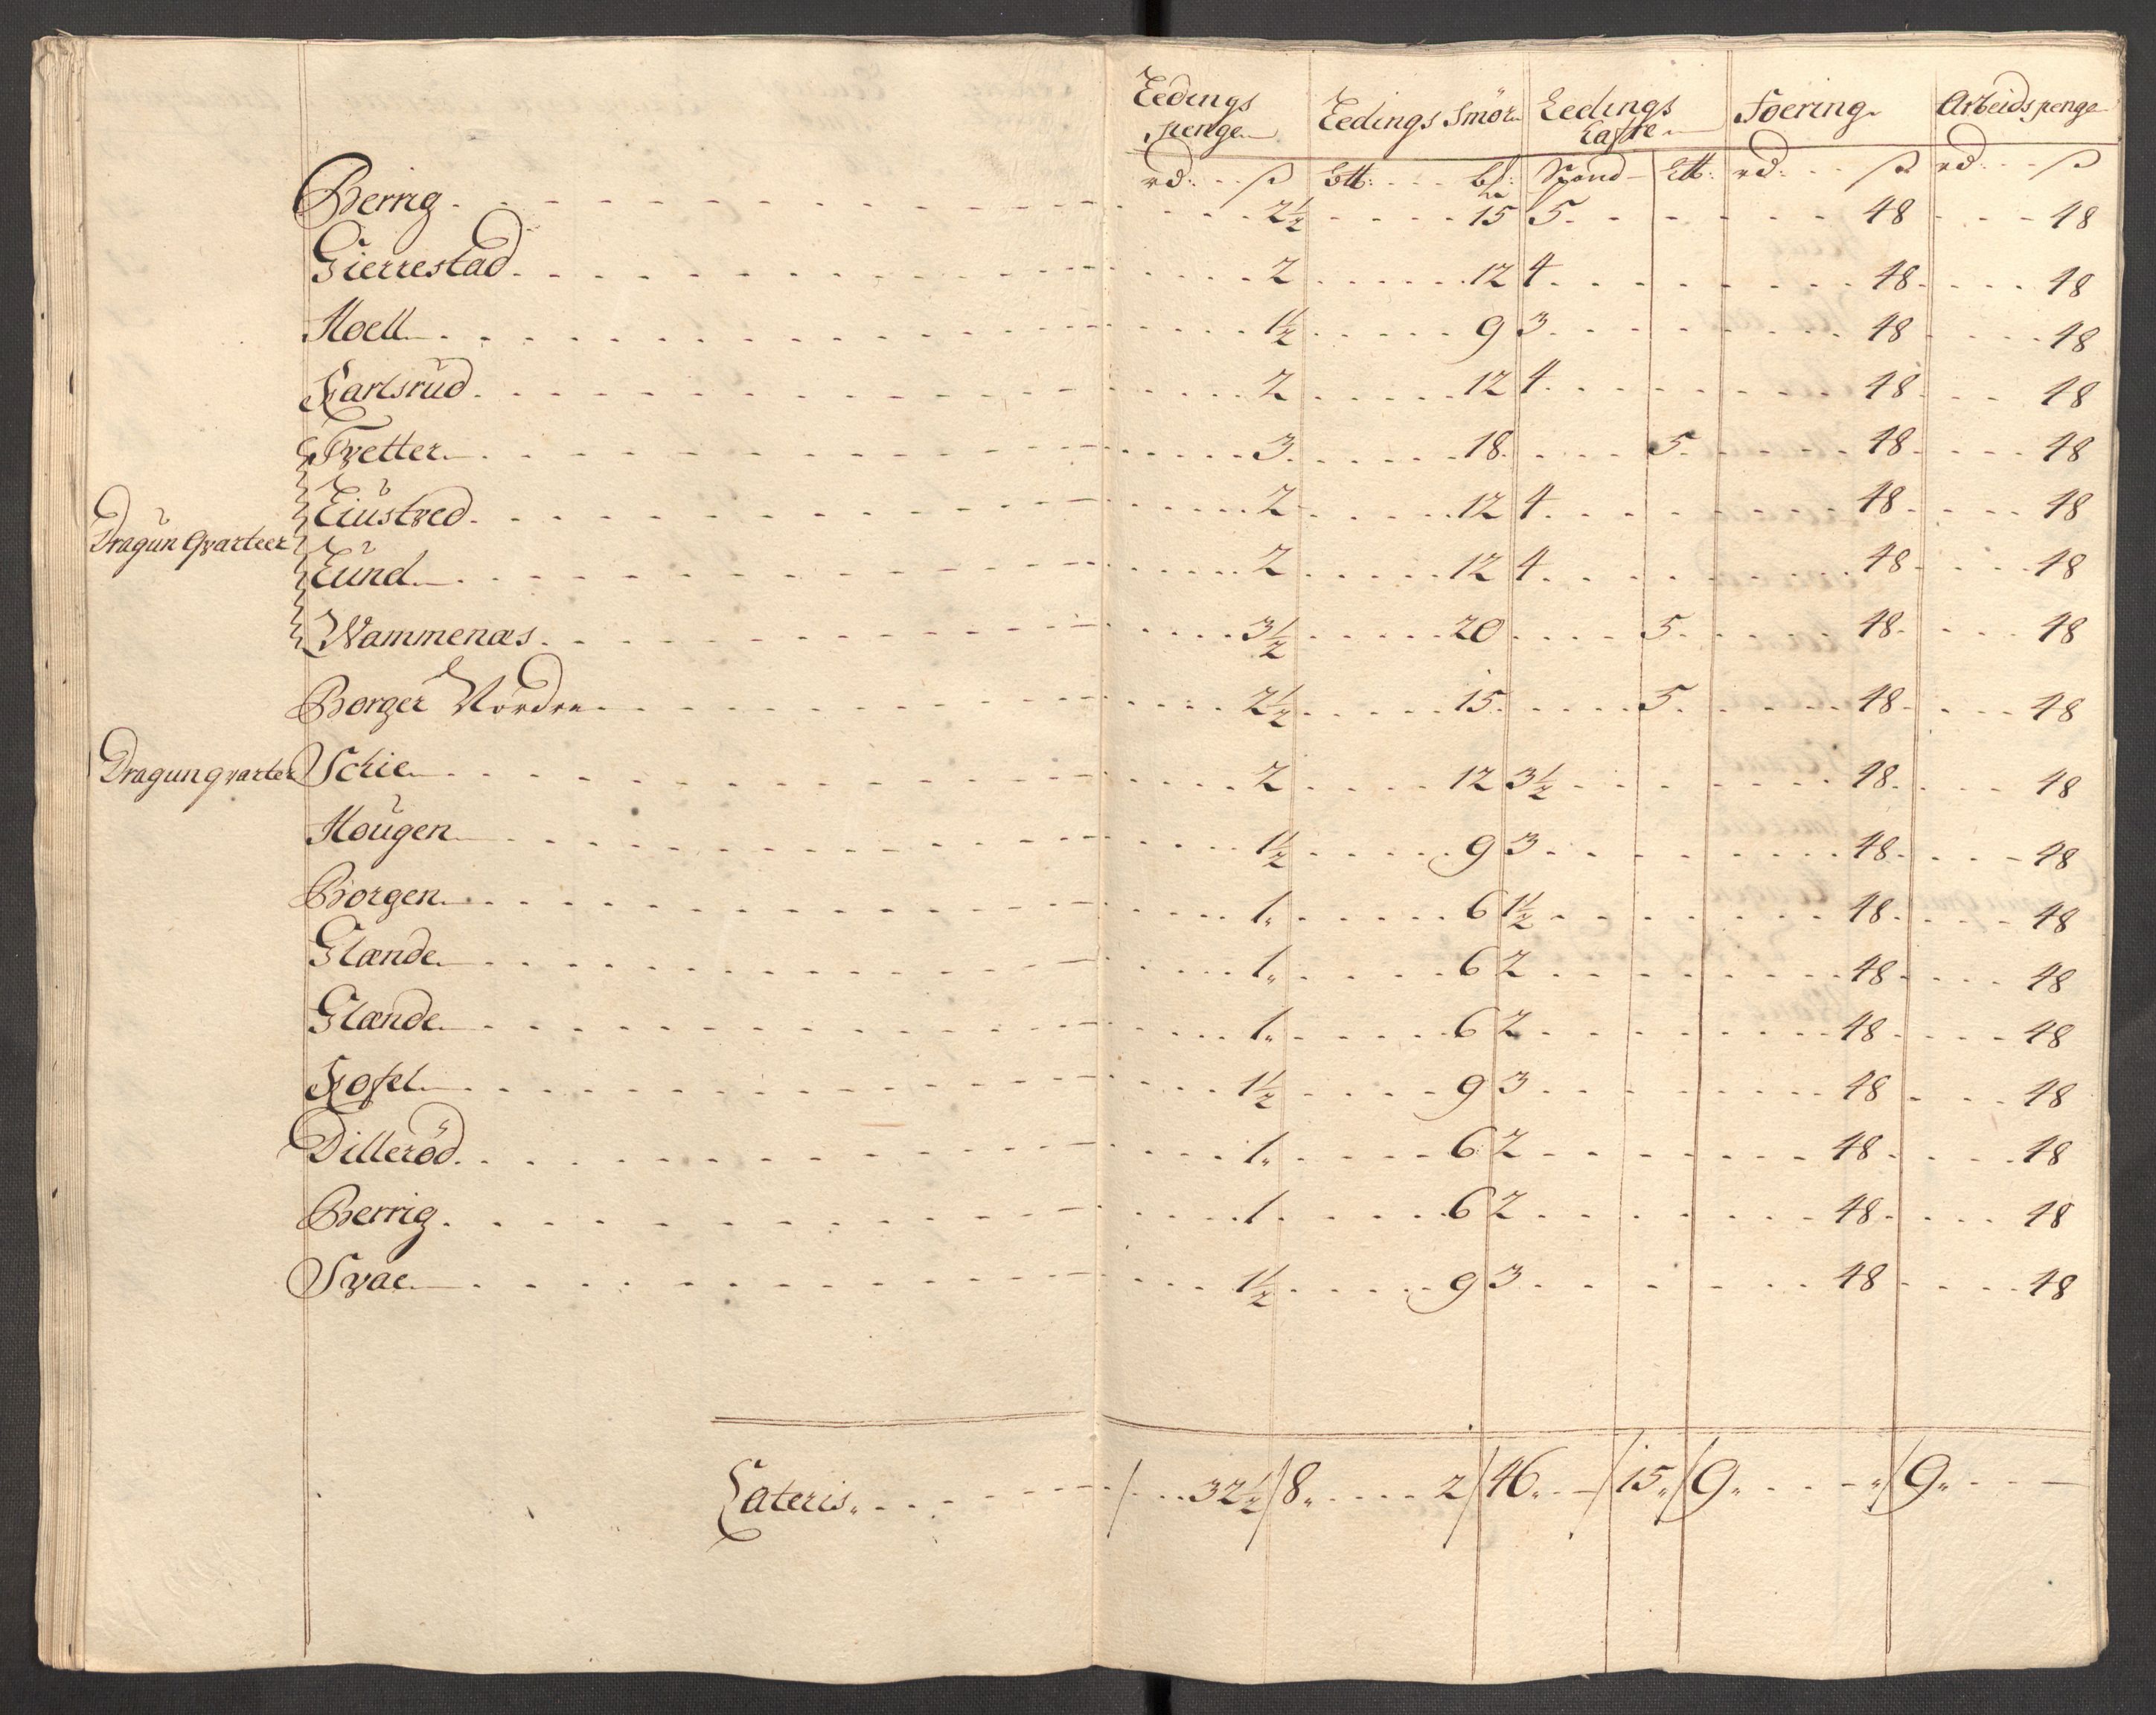 Ledings penge Ledings Smör Ledings Kaste Foering Arbeidspenge
rd: ß btt: b: Spand Ltt: rd: ß rd: ß
Berrig 2½ 15 5 48 48
Gierrestad 2 12 4 48 48
Hoell 1½ 9 3 48 48
Karlsrud 2 12 4 48 48
Tvetter 3 18 5 48 48
Liustved 2 12 4 48 48
Dragun Qvarteer
Lund 2 12 4 48 48
Wammenæs 3½ 20 5 48 48
Borger Nordre 2½ 15 5 48 48
Dragunqvarter Schie 2 12 3½ 48 48
Hougen 1½ 9 3 48 48
Borgen 1 6 1½ 48 48
Glænde 1 6 2 48 48
Glænde 1 6 2 48 48
Kofel 1½ 9 3 48 48
Dilleröd 1 6 2 48 48
Berrig 1 6 2 48 48
Svae 1½ 9 3 48 48
Lateris 32½ 8 2 46 15 9 9